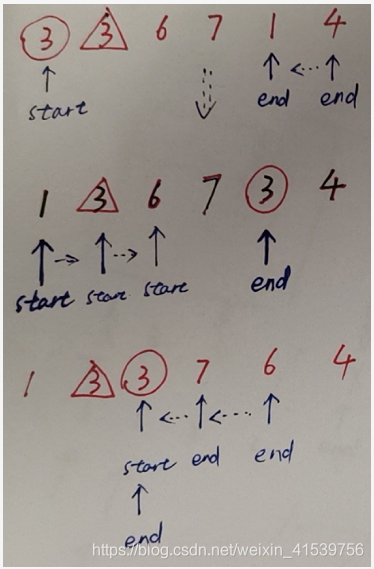 3 3 6 7 1 4
start end end
1 3 6 7 3 4
start start start end
1 3 3 7 6 4
start end end
end
https://blog.csdn.net/weixin_41539756